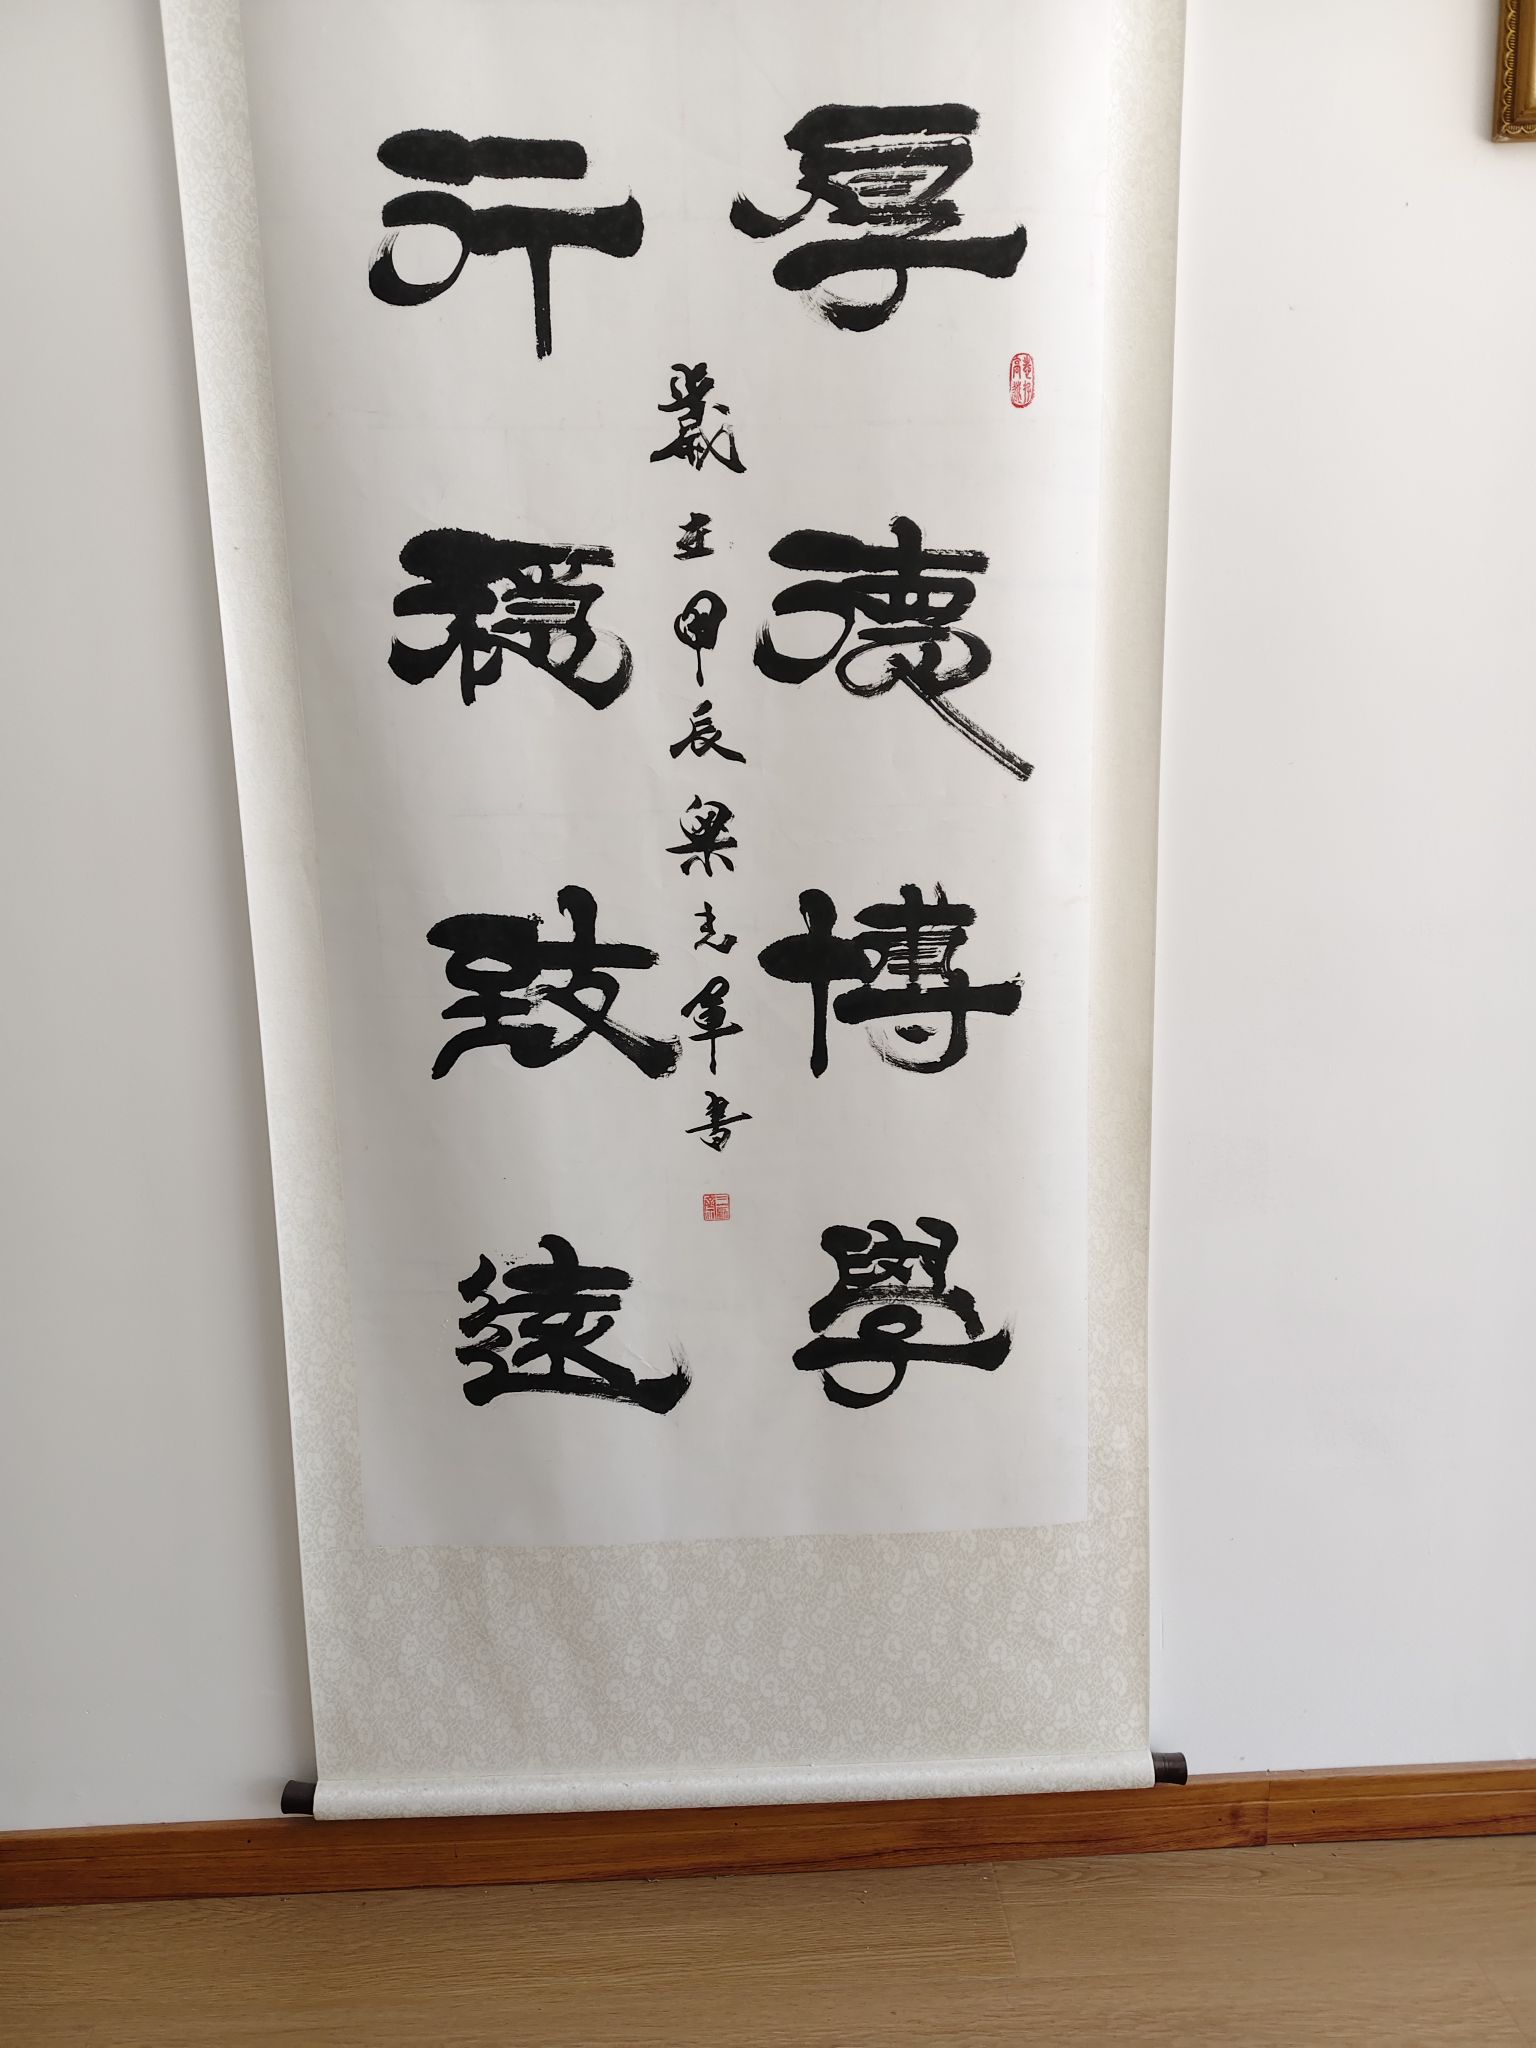 厚德博學
歲在甲辰梁志軍書
行穩致遠